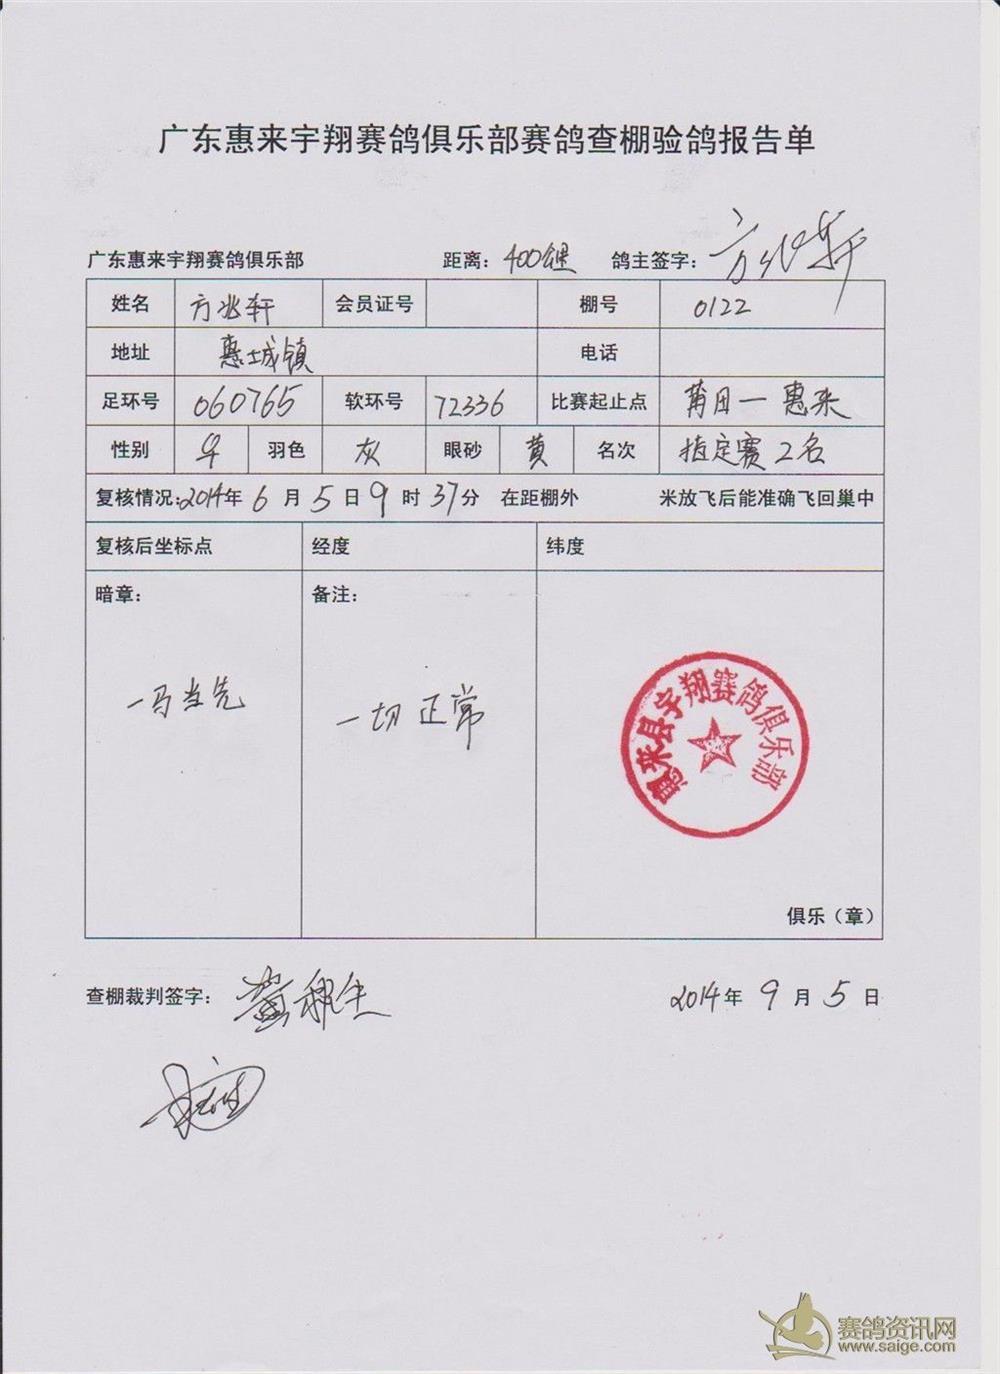 广东惠来宇翔赛鸽俱乐部赛鸽查棚验鸽报告单
广东惠来宇翔赛鸽俱乐部 距离：400公里 鸽主签字：方兆轩
姓名 方兆轩 会员证号 棚号 0122
地址 惠城镇 电话
足环号 060765 软环号 72336 比赛起止点 莆田一惠来
性别 羽色 灰 眼砂 黄 名次 指定赛2名
复核情况:2014年6月5日9时37分 在距棚外 米放飞后能准确飞回巢中
复核后坐标点 经度 纬度
暗章： 备注：
一马当先 一切正常
惠来县宇翔赛鸽俱乐部
俱乐（章）
查棚裁判签字： 2014年9月5日
赛鸽资讯网
www.saige.com